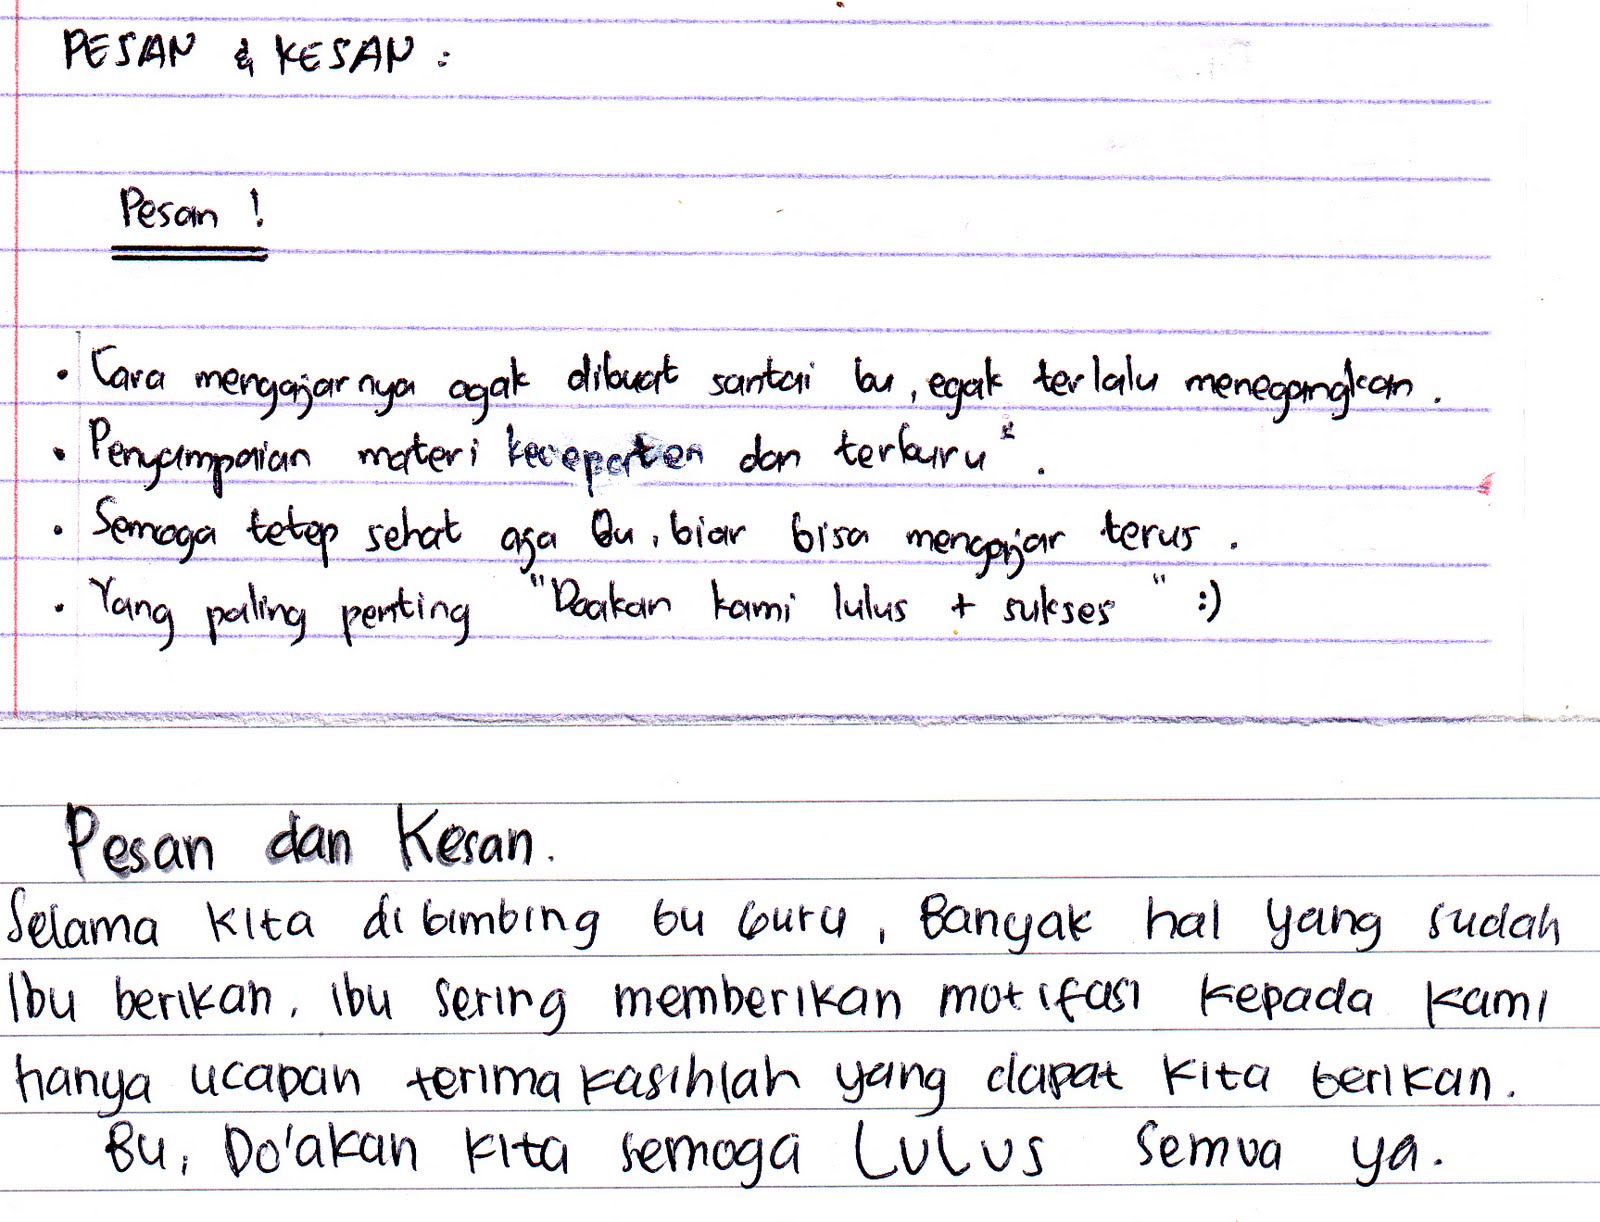 PESAN & KESAN :
Pesan !
• Cara mengajarnya agak dibuat santai bu, egak terlalu menegangkan.
• Penyampaian materi keceparten dan terburu².
• Semoga tetep sehat aja Bu, biar bisa mengajar terus.
• Yang paling penting "Doakan kami lulus + sukses" :)
Pesan dan Kesan.
Selama kita dibimbing bu Guru, Banyak hal yang sudah
Ibu berikan. ibu sering memberikan motifasi kepada kami
hanya ucapan terima kasihlah yang dapat kita berikan.
Bu, Do'akan kita semoga LULUS semua ya.